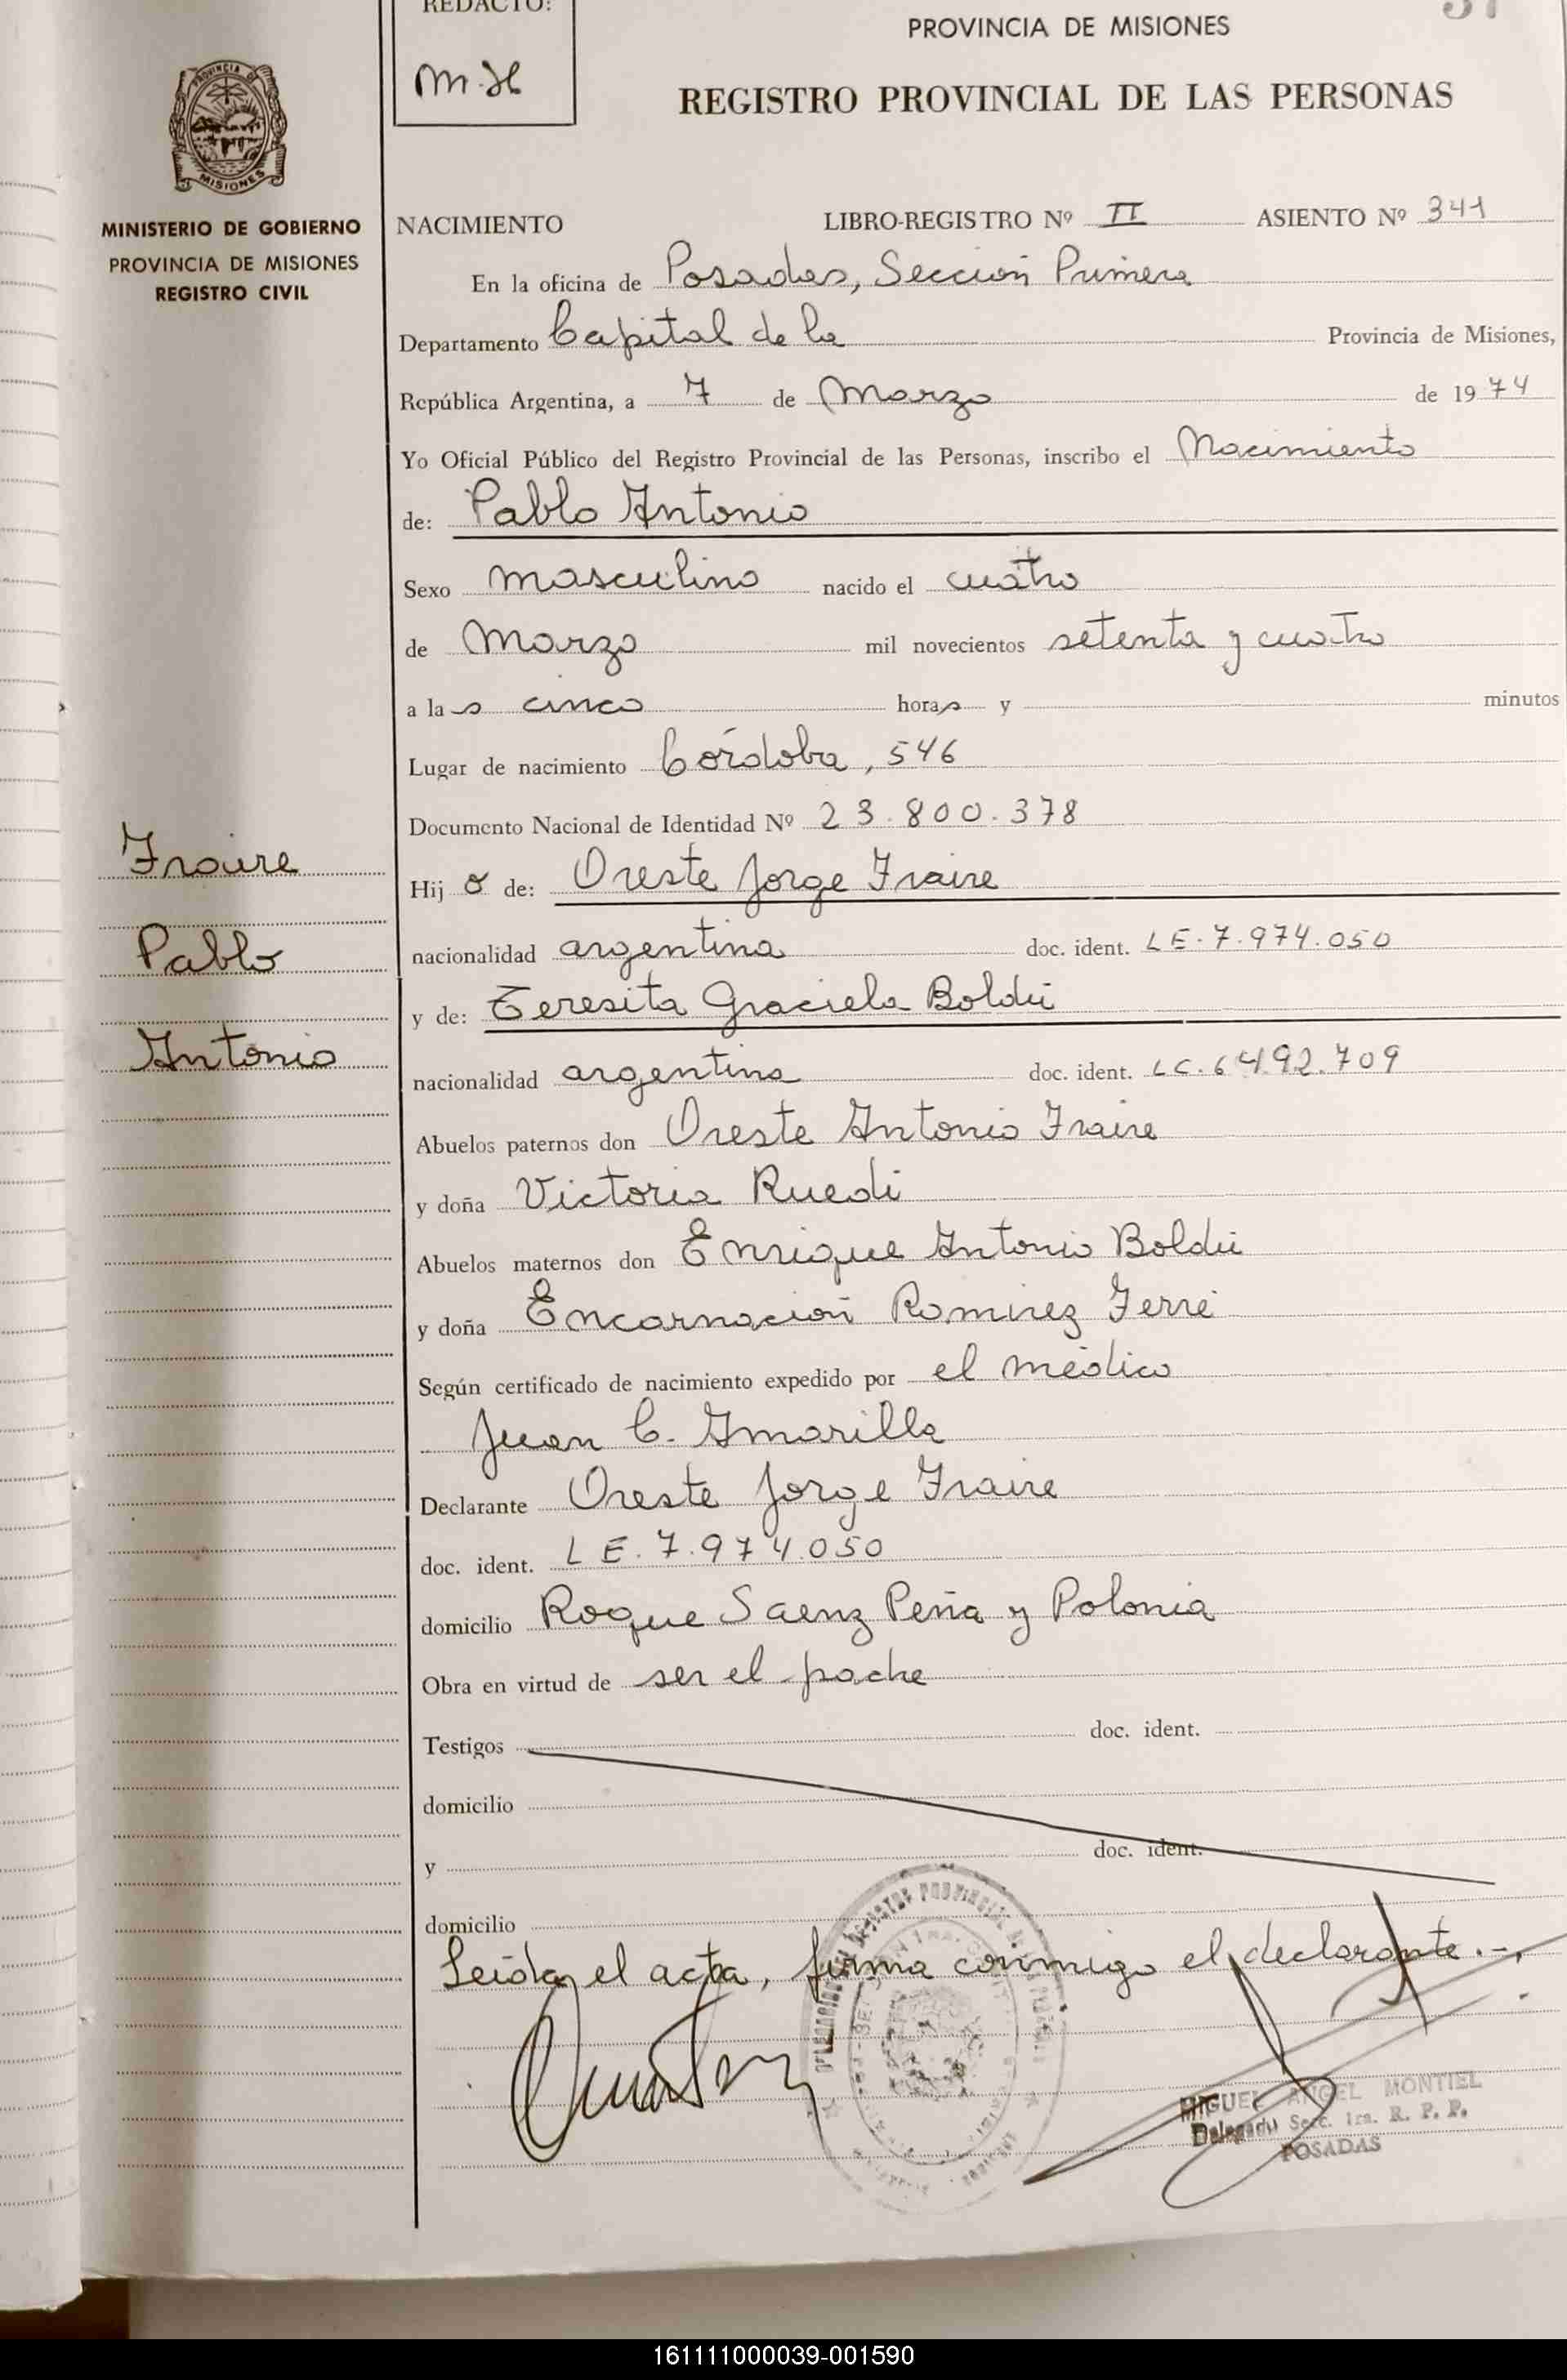 REDACTO:
M.H
PROVINCIA DE MISIONES
REGISTRO PROVINCIAL DE LAS PERSONAS
PROVINCIA DE
MISIONES
MINISTERIO DE GOBIERNO
PROVINCIA DE MISIONES
REGISTRO CIVIL
NACIMIENTO LIBRO-REGISTRO Nº II ASIENTO Nº 341
En la oficina de Posadas, Sección Primera
Departamento Capital de la Provincia de Misiones,
República Argentina, a 7 de Marzo de 1974
Yo Oficial Público del Registro Provincial de las Personas, inscribo el Nacimiento
de: Pablo Antonio
Sexo masculino nacido el cuatro
de Marzo mil novecientos setenta y cuatro
a las cinco horas y minutos
Lugar de nacimiento Córdoba, 546
Documento Nacional de Identidad Nº 23.800.378
Fraire
Hijo de: Oreste Jorge Fraire
Pablo
nacionalidad argentina doc. ident. LE.7.974.050
y de: Teresita Graciela Boldú
Antonio
nacionalidad argentina doc. ident. LC.6492.709
Abuelos paternos don Oreste Antonio Fraire
y doña Victoria Ruedi
Abuelos maternos don Enrique Antonio Boldú
y doña Encarnación Romirez Ferré
Según certificado de nacimiento expedido por el médico
Juan C. Amarilla
Declarante Oreste Jorge Fraire
doc. ident. LE.7.974.050
domicilio Roque Saenz Peña y Polonia
Obra en virtud de ser el padre
Testigos doc. ident.
domicilio
y doc. ident.
domicilio
Leída el acta, firma conmigo el declarante.-.
MIGUEL ANGEL MONTIEL
Delegado Secc. 1ra. R. P. P.
POSADAS
161111000039-001590